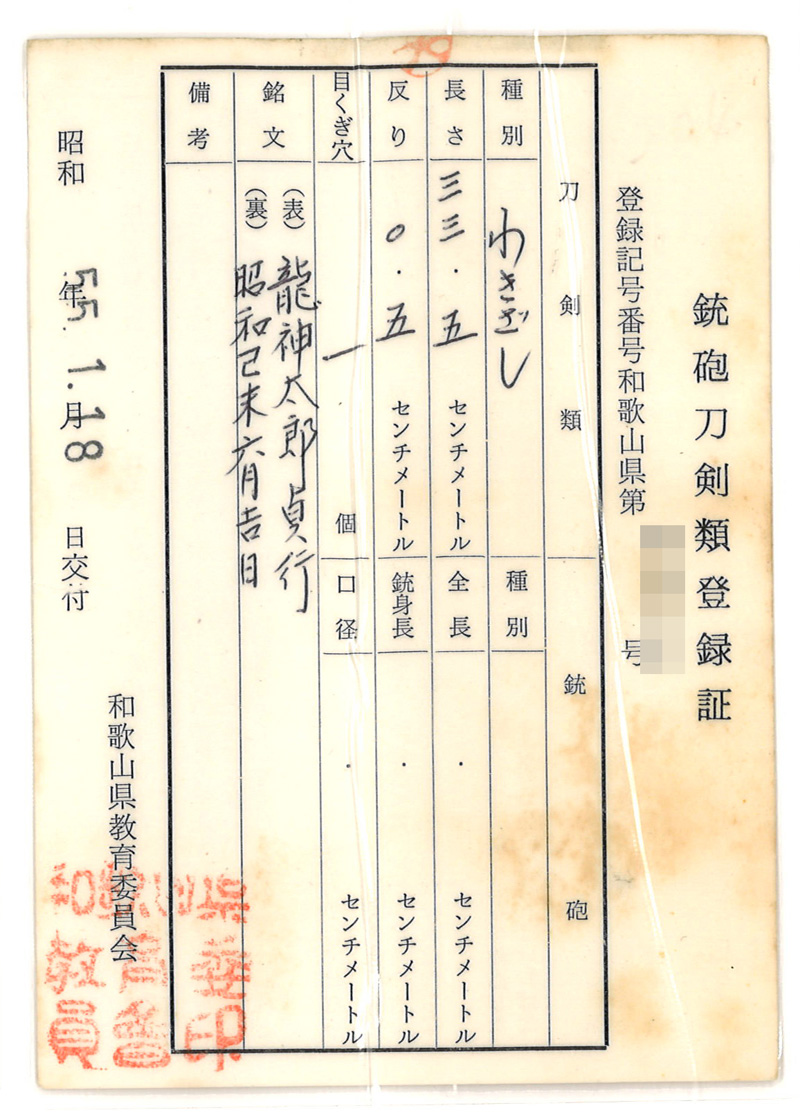 銃砲刀剣類登録証
登録記号番号和歌山県第
号
刀剣類
銃砲
種別
わきざし
種別
長さ
三三・五
センチメートル
全長
・
センチメートル
反り
〇・五
センチメートル
銃身長
・
センチメートル
目くぎ穴
一
個
口径
・
センチメートル
銘文
(表)龍神太郎貞行
(裏)昭和己未六月吉日
備考
昭和55年1.月18日交付
和歌山県教育委員会